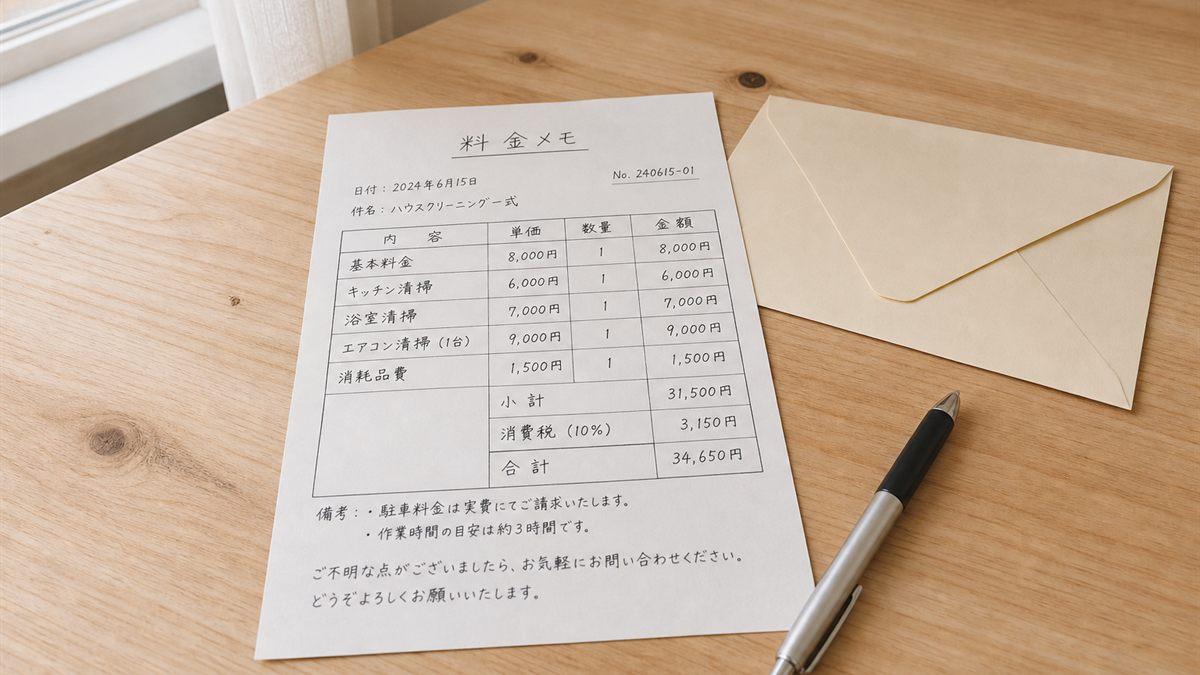 料金メモ
日付：2024年6月15日
No. 240615-01
件名：ハウスクリーニング一式
内容 単価 数量 金額
基本料金 8,000円 1 8,000円
キッチン清掃 6,000円 1 6,000円
浴室清掃 7,000円 1 7,000円
エアコン清掃（1台） 9,000円 1 9,000円
消耗品費 1,500円 1 1,500円
小計 31,500円
消費税（10%） 3,150円
合計 34,650円
備考：・駐車料金は実費にてご請求いたします。
・作業時間の目安は約3時間です。
ご不明な点がございましたら、お気軽にお問い合わせください。
どうぞよろしくお願いいたします。